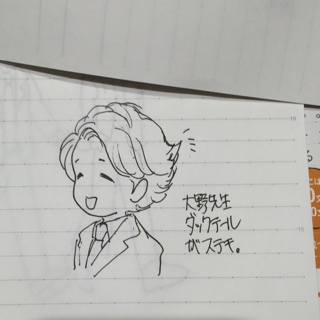 大野先生
ダックテール
がステキ。